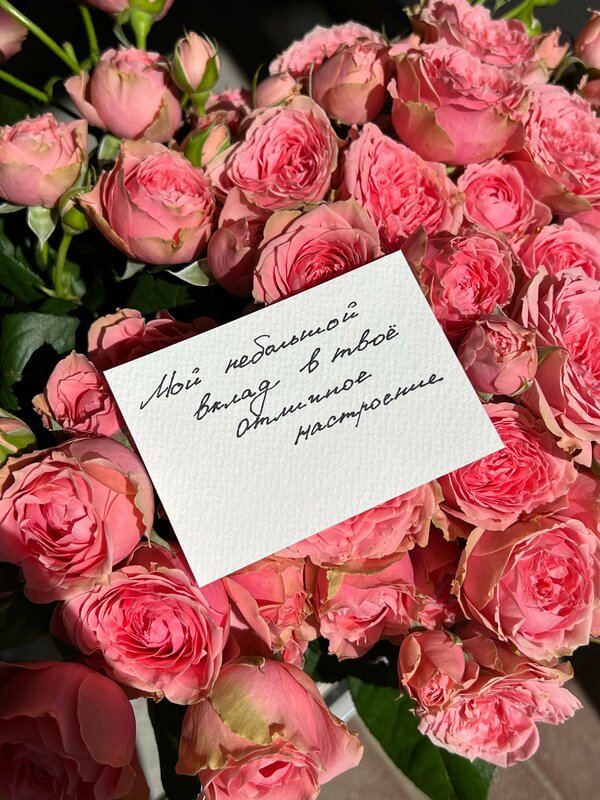 Мой небольшой
вклад в твоё
отличное
настроение